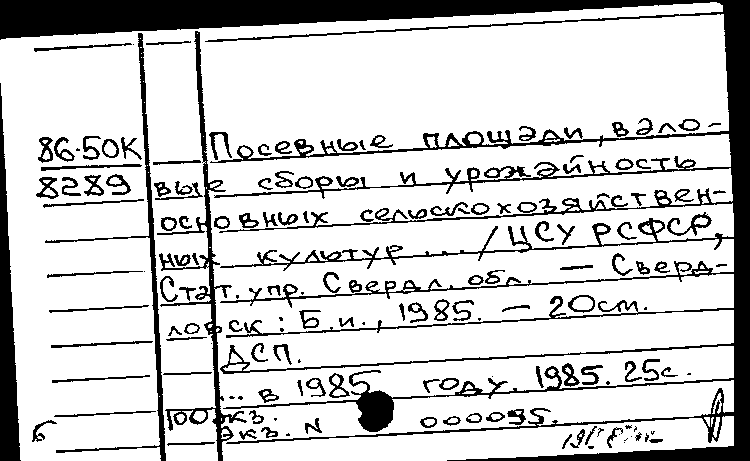 86-50К Посевные площади, вало-
8289 вые сборы и урожайность
основных сельскохозяйствен-
ных культур ... /ЦСУ РСФСР,
Стат. упр. Свердл. обл. — Сверд-
ловск: Б.и., 1985. — 20см.
ДСП.
... в 1985 году. 1985. 25с.
100 экз.
б экз. N 000095.